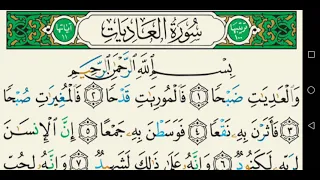 سُورَةُ الْعَادِيَاتِ
بِسْمِ اللَّهِ الرَّحْمَٰنِ الرَّحِيمِ
وَالْعَٰدِيَٰتِ ضَبْحًا ۝١ فَالْمُورِيَٰتِ قَدْحًا ۝٢ فَالْمُغِيرَٰتِ صُبْحًا
۝٣ فَأَثَرْنَ بِهِ نَقْعًا ۝٤ فَوَسَطْنَ بِهِ جَمْعًا ۝٥ إِنَّ الْإِنسَٰنَ
لِرَبِّهِ لَكَنُودٌ ۝٦ وَإِنَّهُ عَلَىٰ ذَٰلِكَ لَشَهِيدٌ ۝٧ وَإِنَّهُ لِحُبِّ